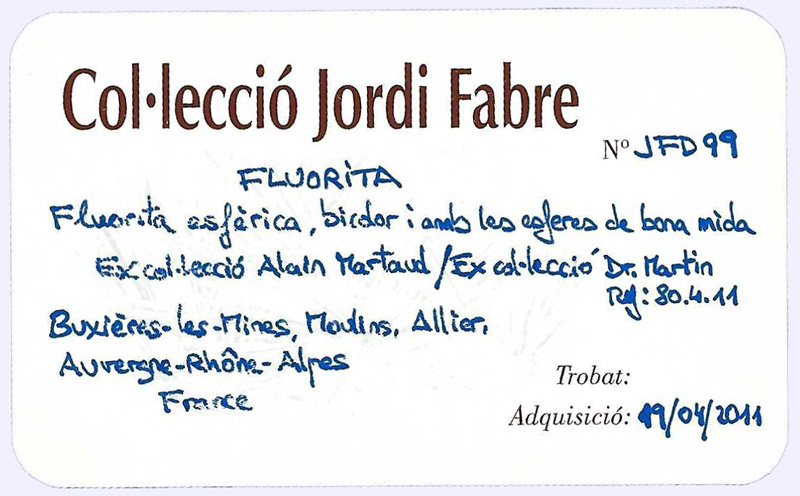 Col·lecció Jordi Fabre
Nº JFD99
FLUORITA
Fluorita esfèrica, bicolor i amb les esferes de bona mida
Ex col·lecció Alain Martaud / Ex col·lecció Dr. Martin
Ref: 80.4.11
Buxières-les-Mines, Moulins, Allier,
Auvergne-Rhône-Alpes
France
Trobat:
Adquisició: 19/04/2011